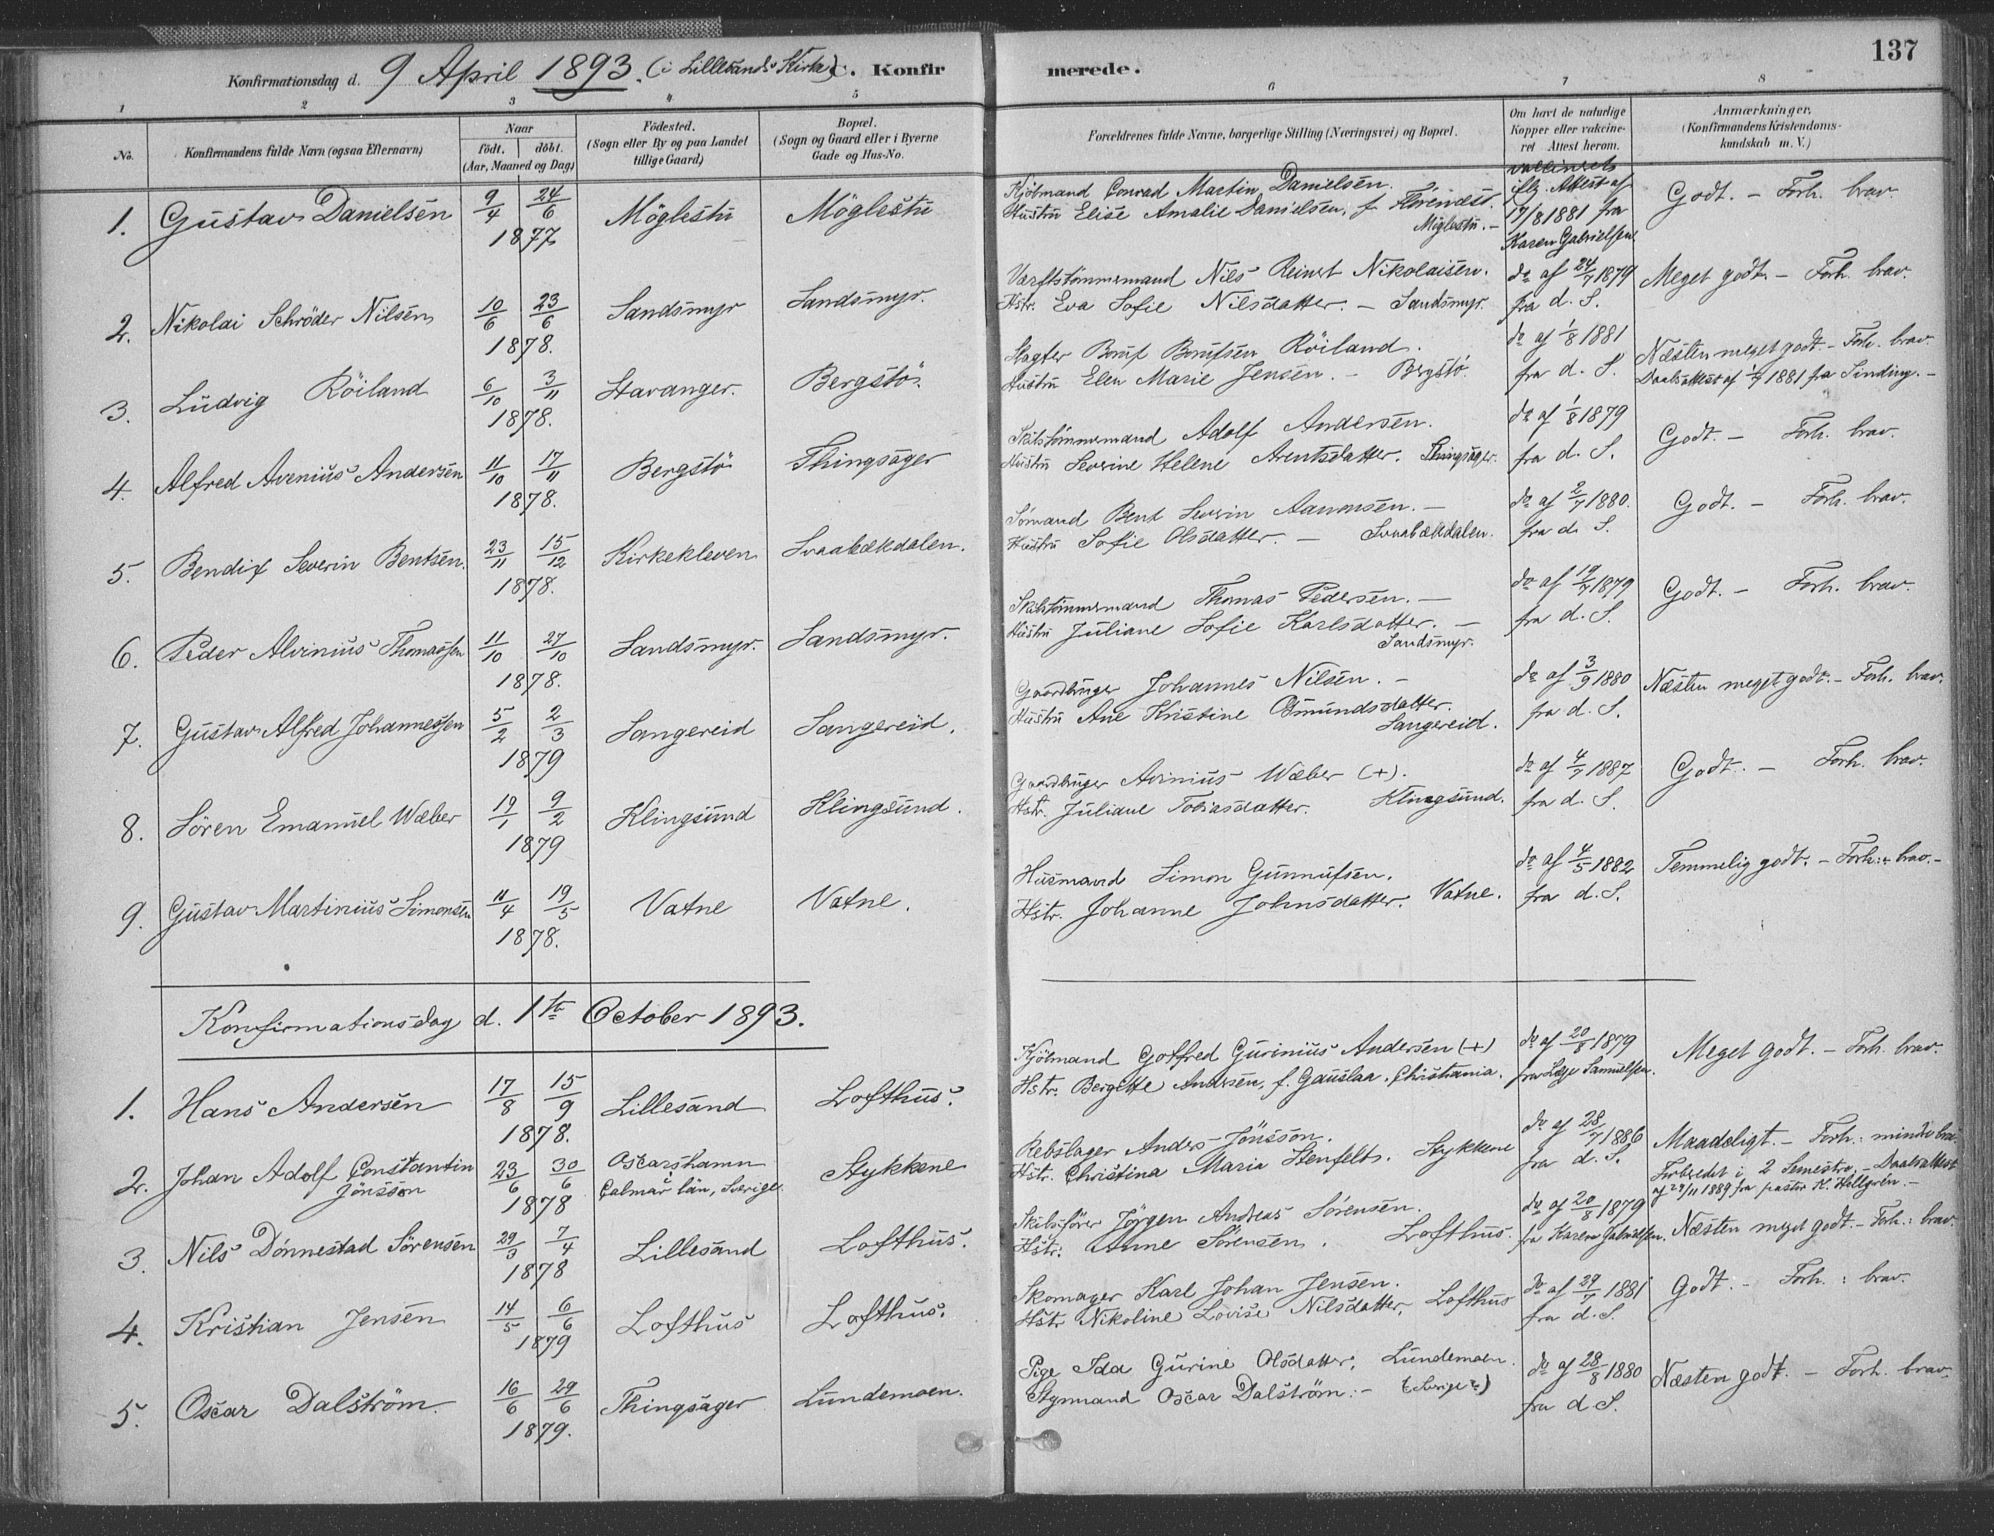 137
Konfirmationsdag d. 9 April 1893. (i Lillesands Kirke) C. Konfirmerede.
1 2 3 4 5 6 7 8
No. Konfirmandens fulde Navn (ogsaa Efternavn) Naar födt. döbt. (Aar, Maaned og Dag)
Födested. (Sogn eller By og paa Landet tillige Gaard)
Bopæl. (Sogn og Gaard eller i Byerne Gade og Hus-No.
Forældrenes fulde Navne, borgerlige Stilling (Næringsvei) og Bopæl.
Om havt de naturlige Kopper eller vakcineret Attest herom.
Anmærkninger. (Konfirmandens Kristendomskundskab m. V.)
1. Gustav Danielsen 9/4 24/6 1877 Möglestu Möglestu
Kjöbmand Conrad Martin Danielsen.
Hustru Elise Amalie Danielsen, f.
Möglestu. –
vaccineret
iflg. Attest af
17/8 1881 fra
Karen Gabrielsen
Godt. – Forh. brav.
2. Nikolai Schröder Nilsen 10/6 23/6 1878. Sandsmyr Sandsmyr.
Værftstömmermand Nils Reinert Nikolaisen.
Hstr. Eva Sofie Nilsdatter. – Sandsmyr.
do af 24/7 1879
fra d. S.
Meget godt. – Forh. brav.
3. Ludvig Röiland 6/10 3/11 1878. Stavanger. Bergstö.
Slagter Berut Berutsen Röiland.
Hustru Elen Marie Jensen. – Bergstö.
do af 1/8 1881
fra d. S.
Næsten meget godt – Forh. brav.
Daabsattest af 1/7 1881 fra Sinding. –
4. Alfred Avenius Andersen 11/10 17/11 1878. Bergstö Thingsager
Skibstömmermand Adolf Andersen.
Hustru Severine Helene Arentsdatter. Thingsager.
do af 1/8 1879
fra d. S.
Godt. – Forh. brav.
5. Bendix Severin Bentsen. 23/11 15/12 1878. Kirkekleven Svaabækdalen.
Sömand Bent Severin Aanonsen. –
Hustru Sofie Olsdatter. – Svaabækdalen.
do af 2/7 1880.
fra d. S.
Godt. – Forh. brav.
6. Peder Alvinius Thomassen 11/10 27/10 1878. Sandsmyr. Sandsmyr.
Skibstömmermand Thomas Pedersen. –
Hustru Juliane Sofie Karlsdatter. –
Sandsmyr.
do af 19/7 1879
fra d. S.
Godt. – Forh. brav.
7. Gustav Alfred Johannessen 5/2 2/3 1879 Sangereid Sangereid.
Gaardbruger Johannes Nilsen. –
Hustru Ane Kristine Osmundsdatter.
Sangereid.
do af 3/9 1880
fra d. S.
Næsten meget godt. – Forh. brav.
8. Sören Emanuel Wæber 19/1 9/2 1879 Klingsund Klingsund.
Gaardbruger Avinius Wæber (+).
Hstr. Juliane Tobiasdatter. Klingsund.
do af 4/7 1887
fra d. S.
Godt. – Forh. brav.
9. Gustav Martinius Simonsen 11/4 19/5 1878. Vatne Vatne.
Husmand Simon Gunnufsen.
Hstr. Johanne Johnsdatter. Vatne.
do af 4/5 1882
fra d. S.
Temmelig godt. – Forh: brav. –
Konfirmationsdag d. 1ste October 1893.
1. Hans Andersen 17/8 15/9 1878. Lillesand Lofthus.
Kjöbmand Gotfred Gurinius Andersen (+)
Hstr. Bergitte Andersen, f. Gauslaa. Christiania.
do af 20/8 1879
fra Læge Samuelsen.
Meget godt. – Forh. brav.
2. Johan Adolf Constantin Jönsson 23/6 30/6 1878 Oscarshamn Calmar län, Sverige. Stykkene
Rebslager Anders Jönsson.
Hstr. Christina Maria Stenfelt. Stykkene
do af 28/7 1886
fra d. S.
Maadeligt. – Forh: mindre brav
Forberedet i 2 Semestre. – Daabsattest
af 29/11 1889 fra pastor K. Hellgren. –
3. Nils Dönnestad Sörensen 29/3 7/4 1878 Lillesand Lofthus.
Skibsförer Jörgen Andreas Sörensen.
Hstr. Anne Sörensen. Lofthus.
do af 20/8 1879
fra Karen Gabrielsen.
Næsten meget godt. – Forh.: brav.
4. Kristian Jensen 14/5 6/6 1879 Lofthus Lofthus.
Skomager Karl Johan Jensen.
Hstr Nikoline Lovise Nilsdatter. Lofthus
do af 29/7 1881
fra d. S.
Godt. – Forh.: brav.
5. Oscar Dalström. 16/6 29/6 1879. Thingsager Lundemoen.
Pige Ida Gurine Olsdatter, Lundemoen.
Styrmand Oscar Dalström. – (Sverige?)
do af 28/8 1880
fra d S.
Næsten godt. – Forh. brav.